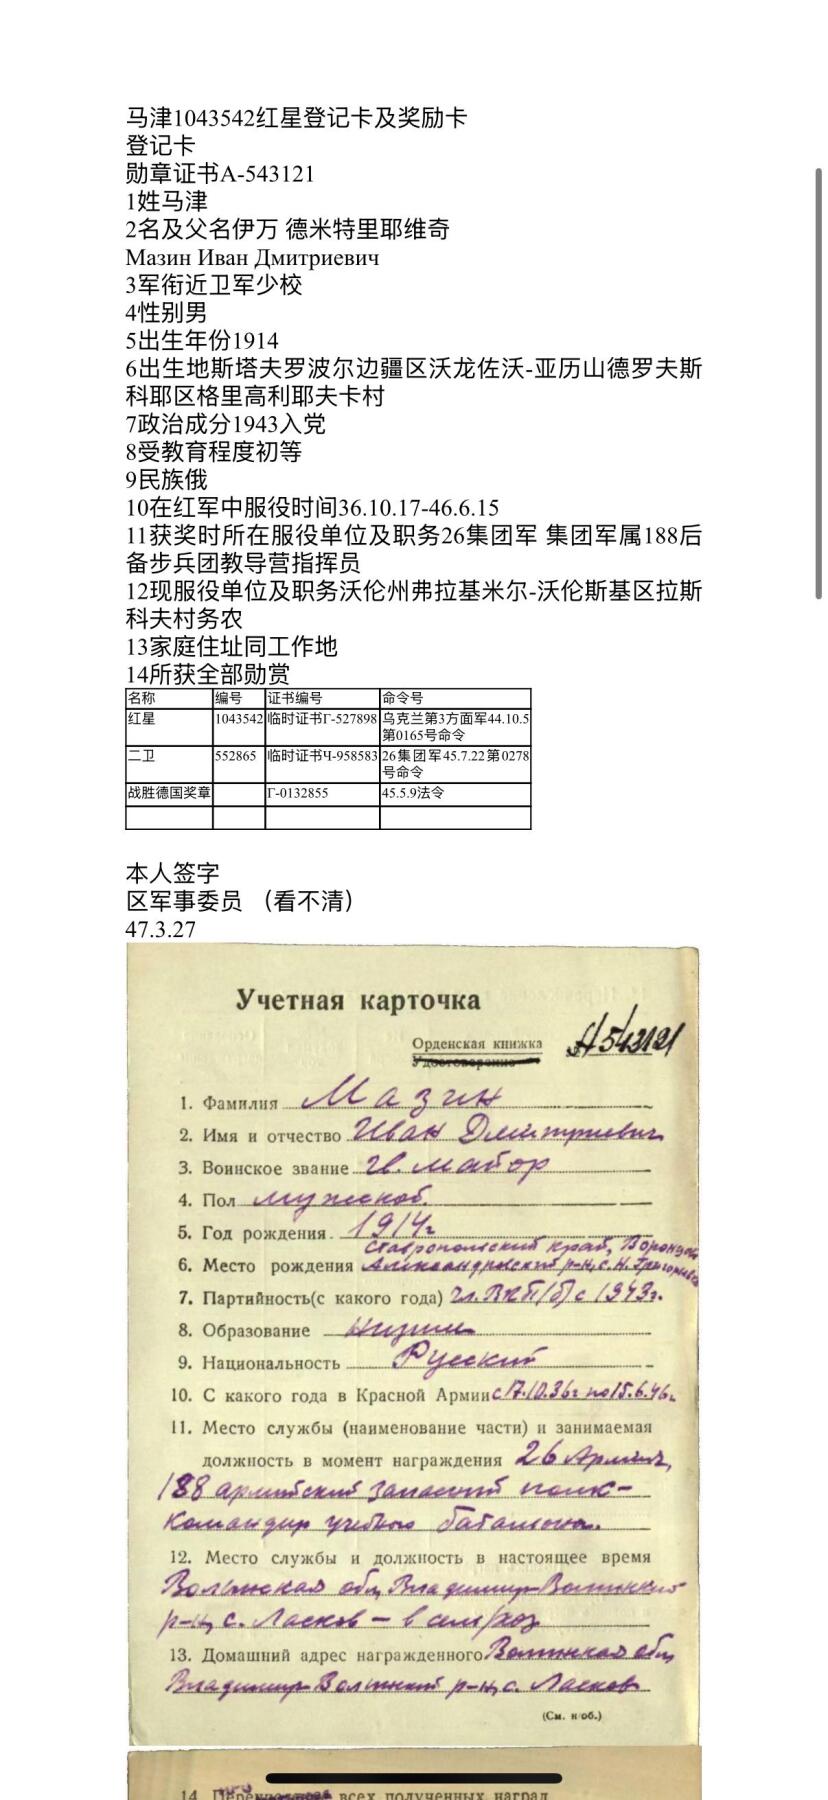 马津1043542红星登记卡及奖励卡
登记卡
勋章证书A-543121
1姓马津
2名及父名伊万 德米特里耶维奇
Мазин Иван Дмитриевич
3军衔近卫军少校
4性别男
5出生年份1914
6出生地斯塔夫罗波尔边疆区沃龙佐沃-亚历山德罗夫斯
科耶区格里高利耶夫卡村
7政治成分1943入党
8受教育程度初等
9民族俄
10在红军中服役时间36.10.17-46.6.15
11获奖时所在服役单位及职务26集团军 集团军属188后
备步兵团教导营指挥员
12现服役单位及职务沃伦州弗拉基米尔-沃伦斯基区拉斯
科夫村务农
13家庭住址同工作地
14所获全部勋赏
名称 编号 证书编号 命令号
红星 1043542 临时证书Г-527898 乌克兰第3方面军44.10.5
第0165号命令
二卫 552865 临时证书Ч-958583 26集团军45.7.22第0278
号命令
战胜德国奖章 Г-0132855 45.5.9法令
本人签字
区军事委员 （看不清）
47.3.27
Учетная карточка
Орденская книжка А 543121
Удостоверение
1. Фамилия Мазин
2. Имя и отчество Иван Дмитриевич
3. Воинское звание Гв. майор
4. Пол мужской.
5. Год рождения. 1914г
Ставропольский край, Воронцово
6. Место рождения Александровский р-н, с. Н. Григорьевка
7. Партийность(с какого года) Чл. ВКП/б/ с 1943г.
8. Образование низшее
9. Национальность Русский
10. С какого года в Красной Армии с 17.10.36г по 15.6.46г.
11. Место службы (наименование части) и занимаемая
должность в момент награждения 26 Армия,
188 армейский запасной полк-
командир учебного батальона.
12. Место службы и должность в настоящее время
Волынская обл, Владимир-Волынский
р-н, с. Ласков - в сель/хоз
13. Домашний адрес награжденного Волынская обл,
Владимир-Волынский р-н, с. Ласков
(См. на об.)
всех полученных наград